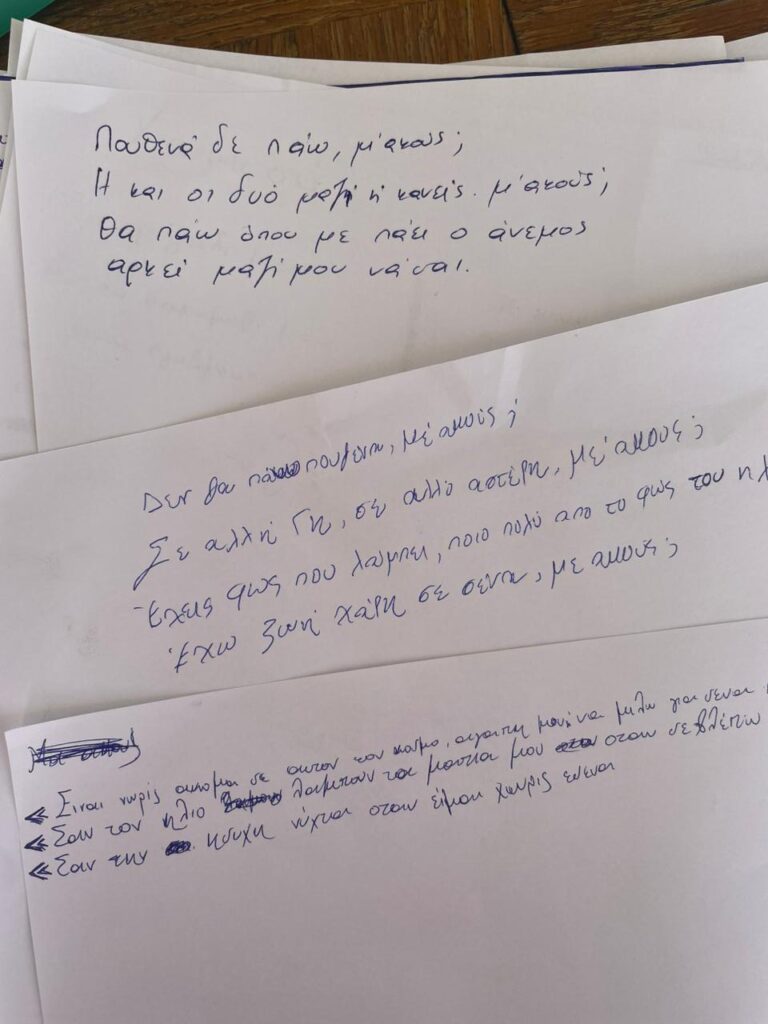 Πουθενά δε πάω, μ'ακούς;
Ή και οι δυό μαζί ή κανείς. μ'ακούς;
Θα πάω όπου με πάει ο άνεμος
αρκεί μαζί μου νά'ναι.
Δεν θα πάω πουθενα, μέ ακούς;
Σε αλλη Γη, σε αλλο αστέρι, μέ ακους;
Έχεις φως που λάμπει, ποιο πολύ απο το φως του ηλ
Έχω ζωή χάρη σε σενα, με ακους;
« Ειναι νωρίς ακομα σε αυτον τον κοσμο, αγαπη μου, να μιλω για σενα
« Σαν τον ηλιο λαμπουν τα ματια μου οταν σε βλέπω
« Σαν την ησυχη νύχτα οταν είμαι χωρίς εσενα